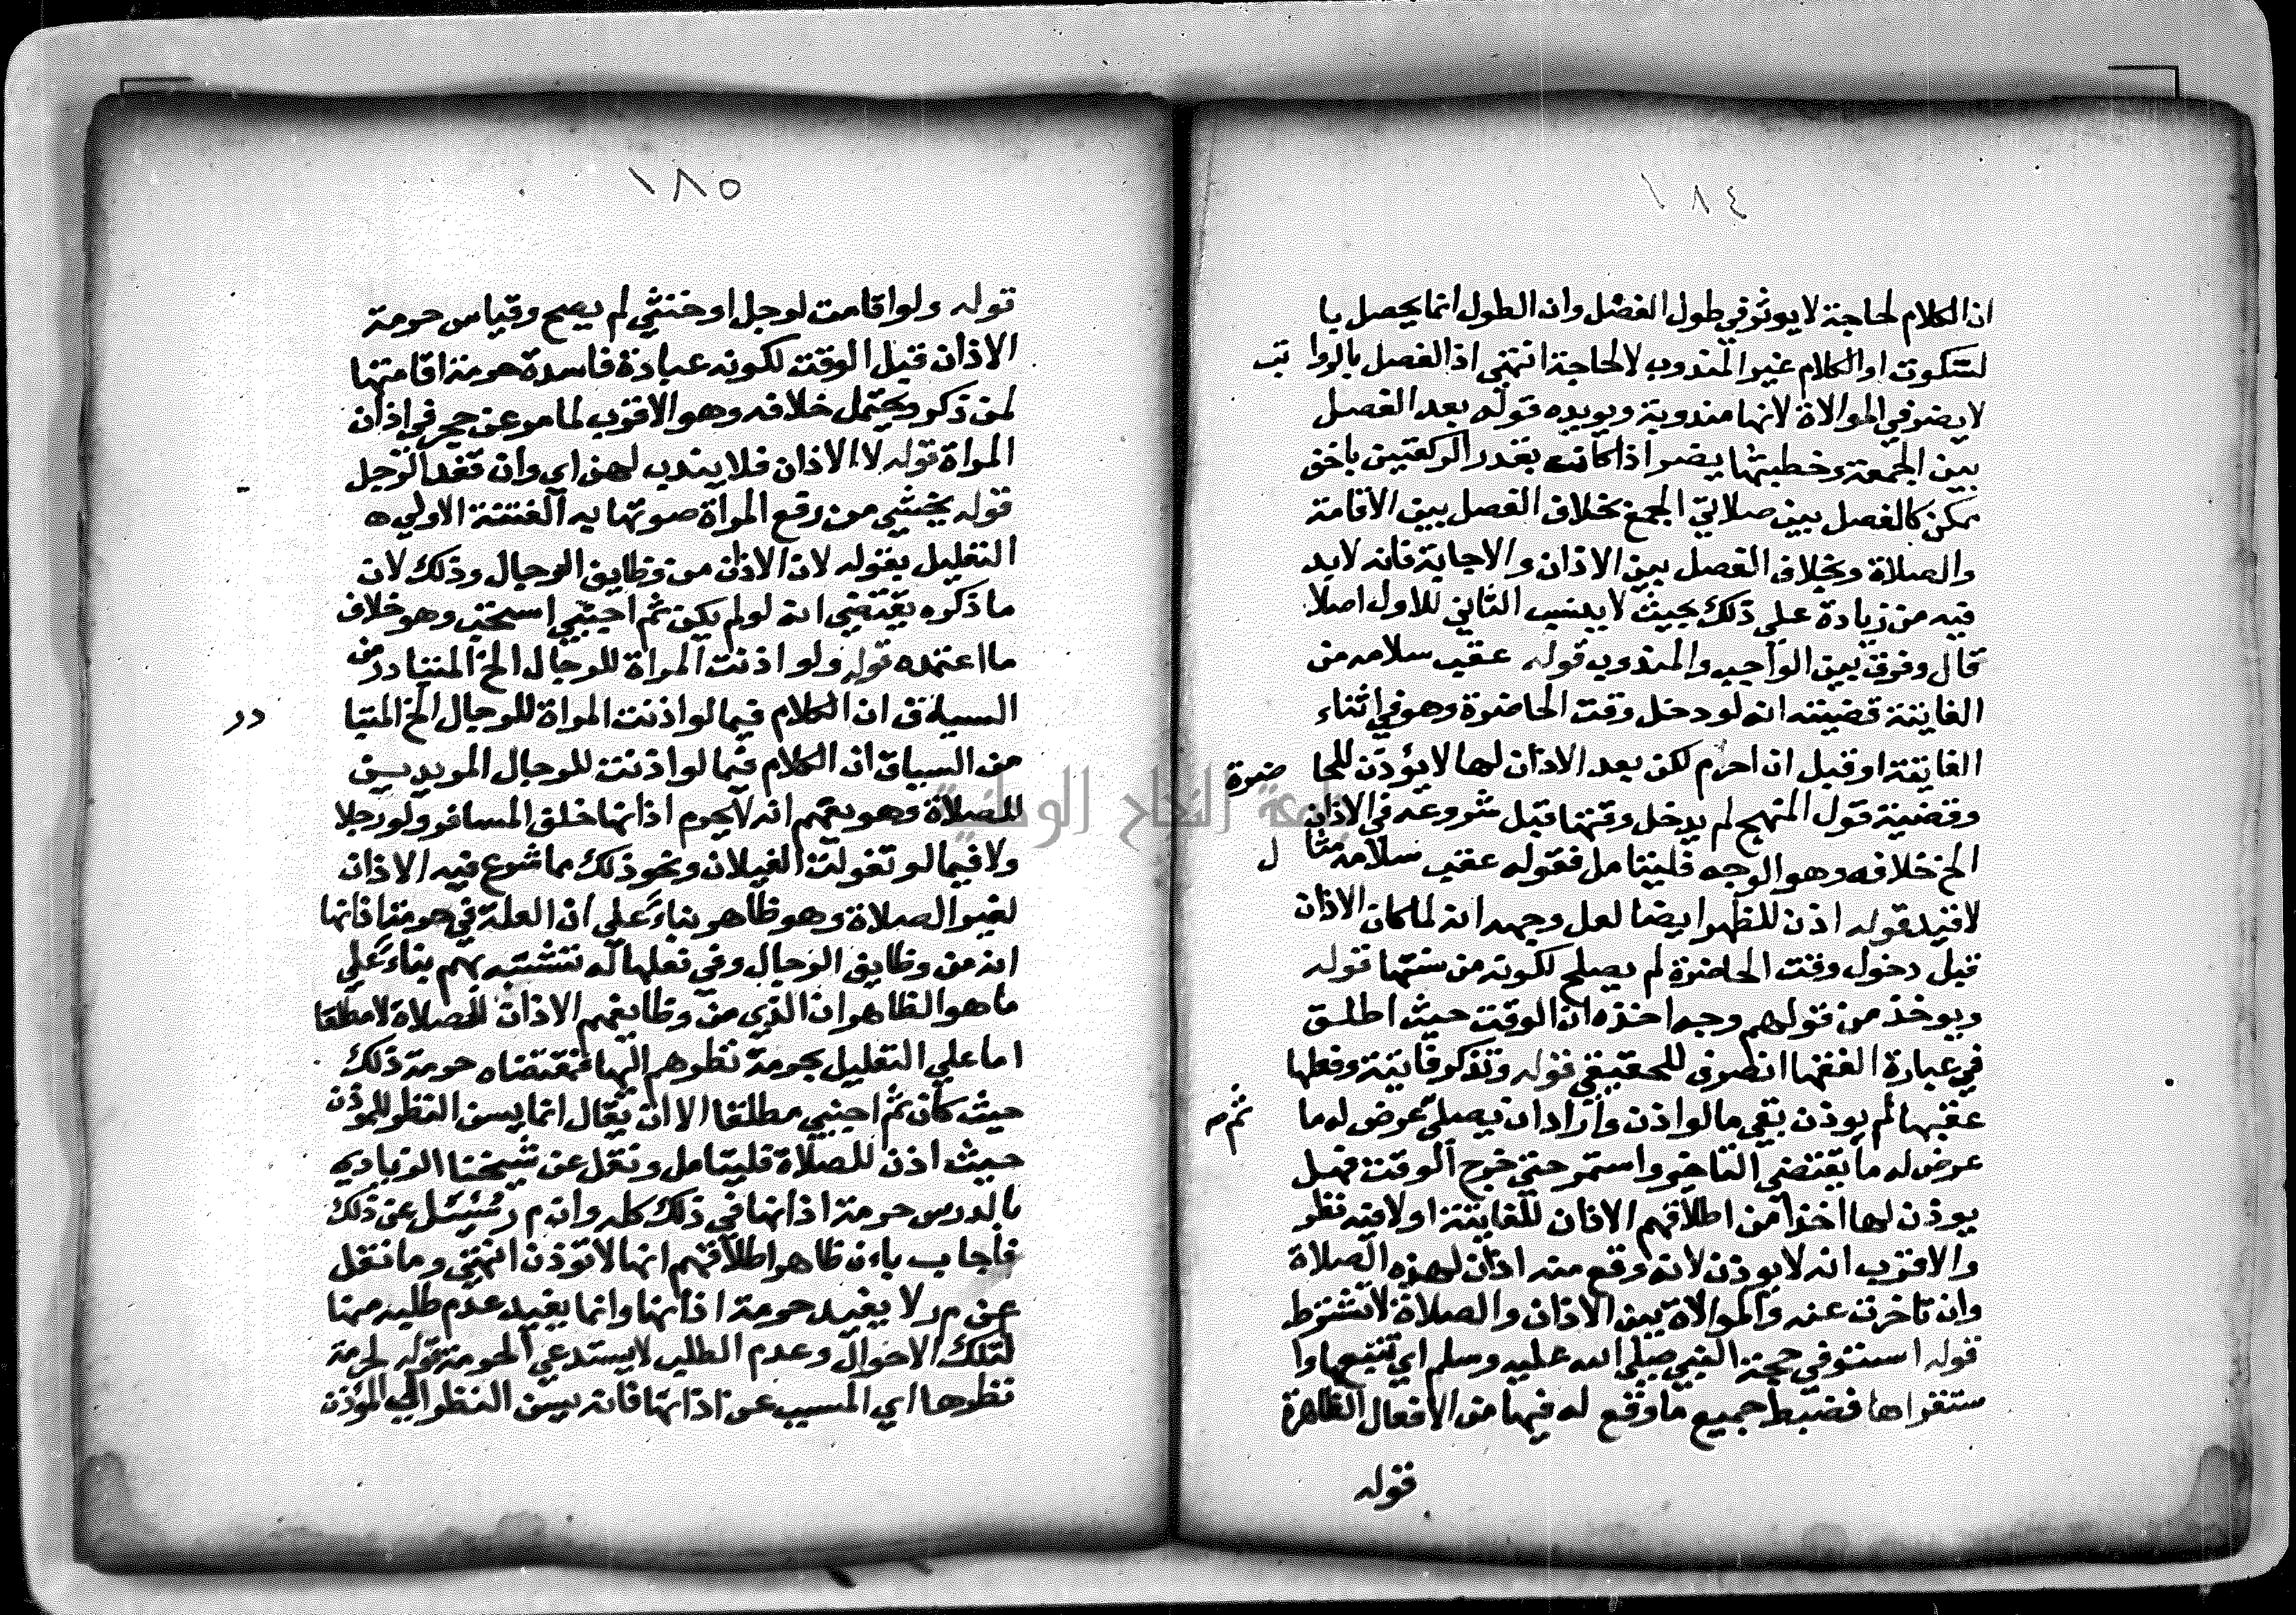 ١٨٤
ان الكلام لحاجة لا يوثر في طول الفصل وان الطول انما يحصل با
لسكوت او الكلام غير المندوب لا لحاجة انتهى اذ الفصل بالروا تب
لا يضر في الموالاة لانها مندوبة ويويده قوله بعد الفصل
بين الجمعة وخطبتها يضر اذا كانت بقدر الركعتين باخف
ممكن كالفصل بين صلاتي الجمع بخلاف الفصل بين الاقامة
والصلاة وبخلاف الفصل بين الاذان والاجابة فانه لا بد
فيه من زيادة على ذلك بحيث لا ينسب الثاني للاول اصلا
قال وفرق بين الواجب والمندوب قوله عقب سلامه من
الفايتة قضيته انه لو دخل وقت الحاضرة وهو في اثناء
الفايتة او قبل ان احرم لكن بعد الاذان لها لا يؤذن للحا ضرة
وقضية قول المنهج لم يدخل وقتها قبل شروعه في الاذان
الخ خلافه وهو الوجه فليتامل فقوله عقب سلامه مثا ل
لا قيد قوله اذن للظهر ايضا لعل وجهه انه لما كان الاذان
قبل دخول وقت الحاضرة لم يصلح لكونه من سنتها قوله
ويوخذ من قولهم وجه اخذه ان الوقت حيث اطلق
في عبارة الفقها انصرف للحقيقي قوله وتذكر فايتة وفعلها
عقبها لم يوذن بقي ما لو اذن واراد ان يصلي عرض له ما ثم ص
عرض له ما يقتضي التاخير واستمر حتى خرج الوقت فهل
يوذن لها اخذا من اطلاقهم الاذان للفايتة او لا فيه نظر
والاقرب انه لا يوذن لانه وقع منه اذان لهذه الصلاة
وان تاخرت عنه والموالاة بين الاذان والصلاة لا تشترط
قوله استوفي حجة النبي صلى الله عليه وسلم اي تتبعها وا
ستقراها فضبط جميع ما وقع له فيها من الافعال الظاهرة
قوله
١٨٥
قوله ولو اقامت لرجل او خنثي لم يصح وقياس حرمة
الاذان قبل الوقت لكونه عبادة فاسدة حرمة اقامتها
لمن ذكر ويحتمل خلافه وهو الاقرب لما مر عن حجر في اذان
المراة قوله لا الاذان فلا يندب لهن اي وان فقد الرجل
قوله يخشي من رفع المراة صوتها به الفتنة الاولي ه
التعليل بقوله لان الاذان من وظايف الرجال وذلك لان
ما ذكره يقتضي انه لو لم يكن ثم اجنبي استحب وهو خلاف
ما اعتمده قوله ولو اذنت المراة للرجال الخ المتبا در من
السياق ان الكلام فيما لو اذنت المراة للرجال الخ المتبا در
من السياق ان الكلام فيما لو اذنت للرجال المريديين
للصلاة وهو يفهم انه لا يحرم اذانها خلف المسافر ولو رجلا
ولا فيما لو تغولت الغيلان ونحو ذلك مما شرع فيه الاذان
لغير الصلاة وهو ظاهر بناء علي ان العلة في حرمة اذانها
انه من وظايف الرجال وفي فعلها له تتشبه بهم بناء علي
ما هو الظاهر ان الذي من وظايفهم الاذان للصلاة لا مطلقا
اما علي التعليل بحرمة نظرهم اليها فمقتضاه حرمة ذلك
حيث كان ثم اجنبي مطلقا الا ان يقال انما يسن النظر للموذن
حيث اذن للصلاة فليتامل ونقل عن شيخنا الزيادي
بالدرس حرمة اذانها في ذلك كله وان م ر سئل عن ذلك
فاجاب بان ظاهر اطلاقهم انها لا توذن انتهي وما نقل
عن م ر لا يفيد حرمة اذانها وانما يفيد عدم طلبه منها
لتلك الاحوال وعدم الطلب لا يستدعي الحرمة قوله لحرمة
نظرها اي المسبب عن اذانها فانه يسن النظر الي المؤذن